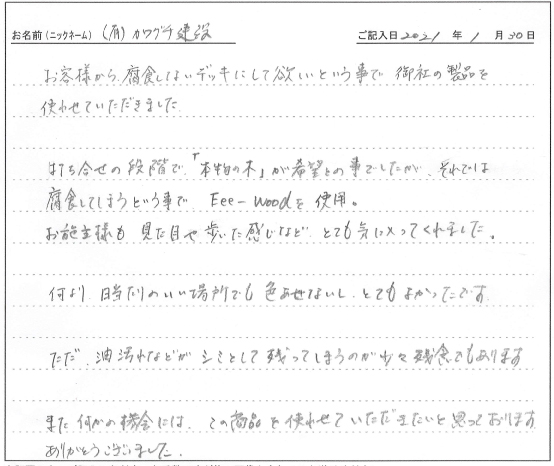 お名前（ニックネーム） (有) カワグチ建設 ご記入日 2021 年 1 月 30 日
お客様から、腐食しないデッキにして欲しいという事で 御社の製品を
使わせていただきました。
打ち合せの段階で、「本物の木」が希望との事でしたが、それでは
腐食してしまうという事で Eee-Woodを使用。
お施主様も 見た目や歩いた感じなど、とても気に入ってくれました。
何より、日当たりのいい場所でも 色あせないし、とてもよかったです。
ただ、油汚れなどが シミとして残ってしまうのが少々残念でもあります
また何かの機会には、この商品を使わせていただきたいと思っております
ありがとうございました。